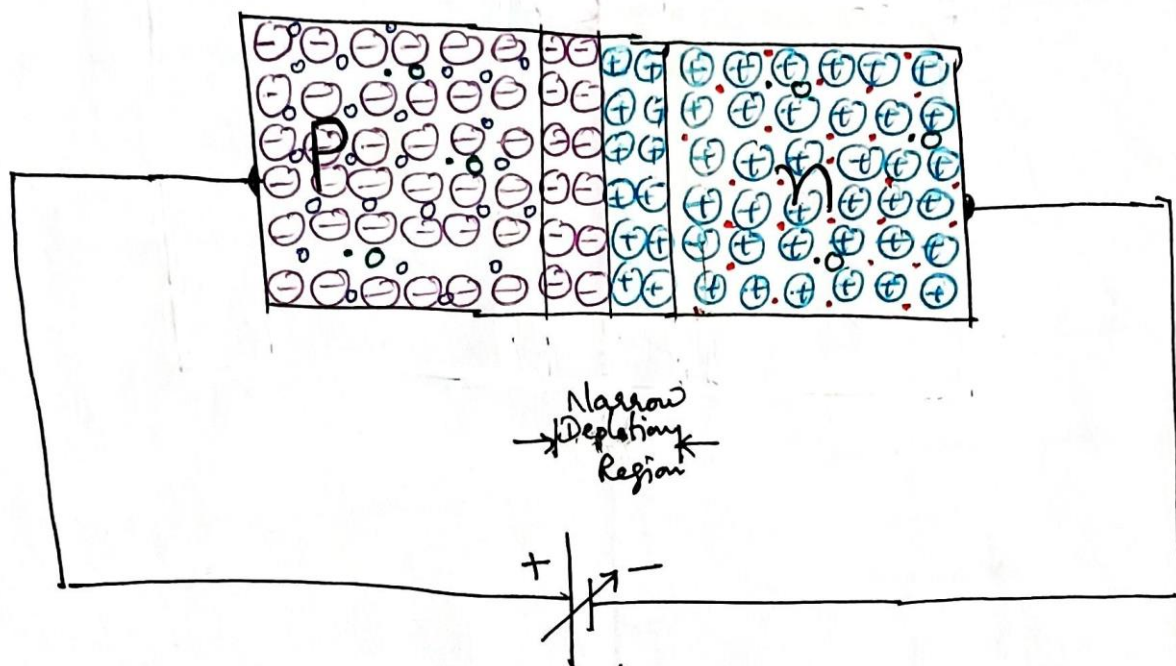 P
n
Narrow
Depletion
Region
+ −